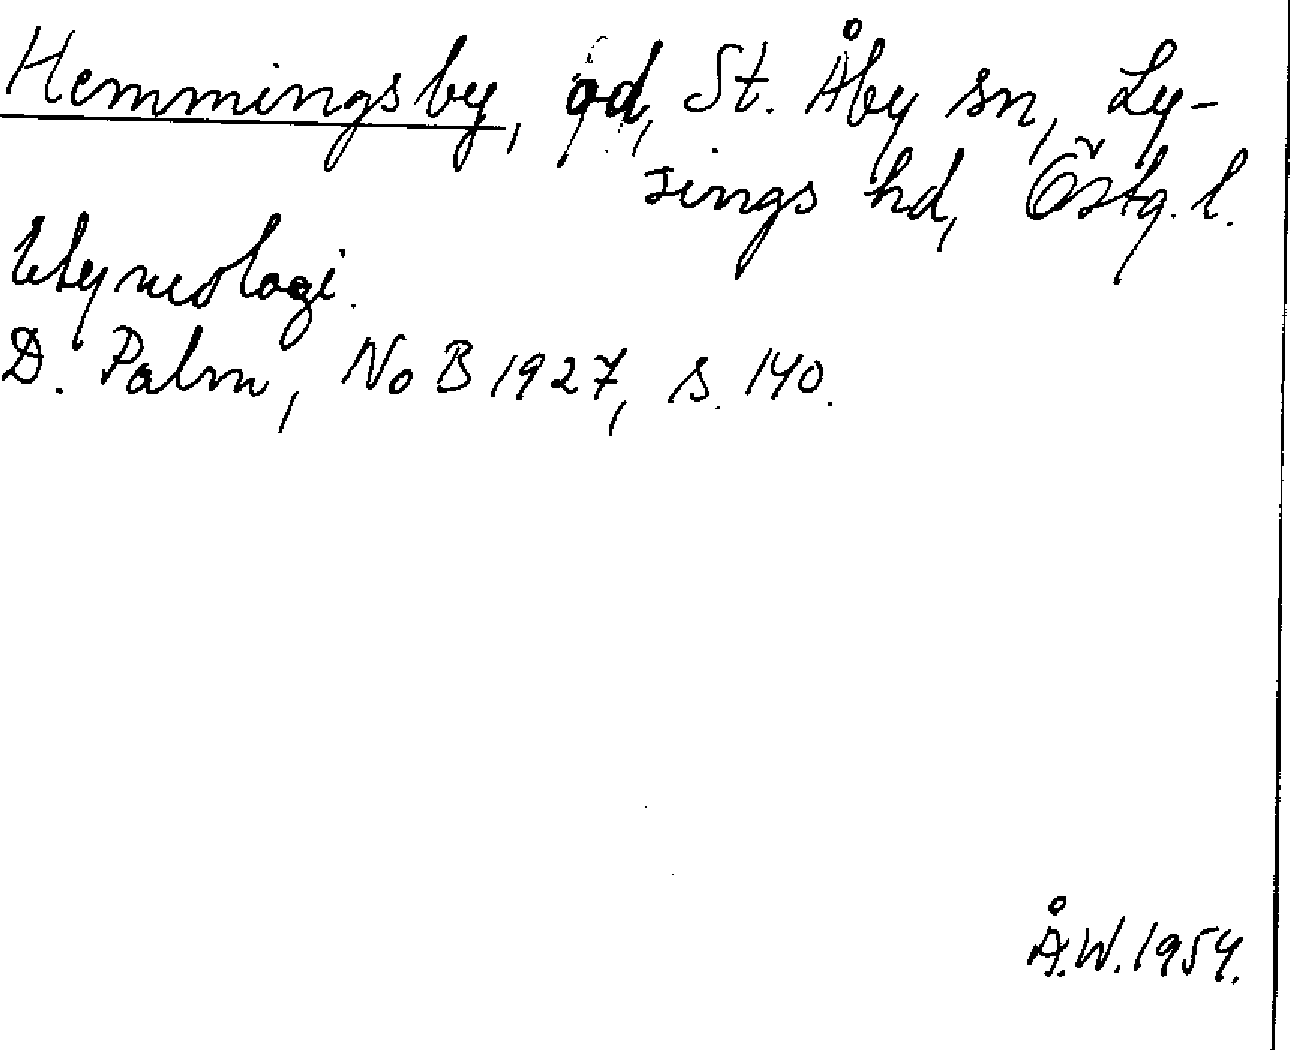 Hemmingsby, gd, St. Åby sn, Ly-
sings hd, Östg. l.
Etymologi.
D. Palm, NoB 1927, s. 140.
Å.W. 1954.